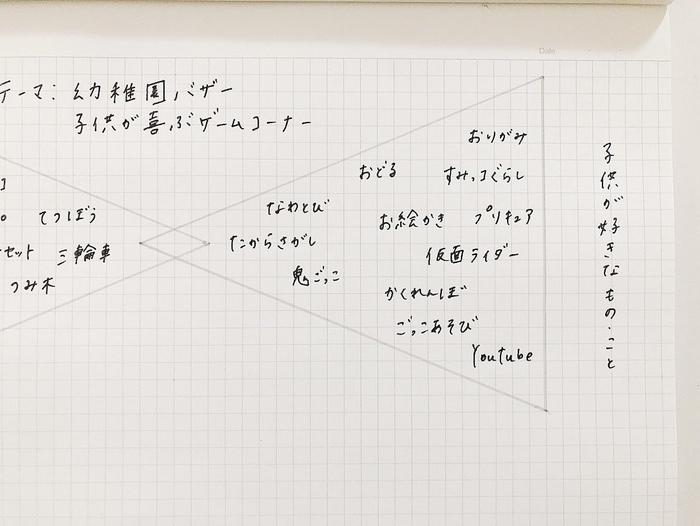 テーマ: 幼稚園バザー
子供が喜ぶゲームコーナー
Date
おりがみ
おどる
すみっコぐらし
なわとび
お絵かき
プリキュア
たからさがし
仮面ライダー
鬼ごっこ
かくれんぼ
ごっこあそび
Youtube
子供が好きなもの・こと
てつぼう
セット
三輪車
つみ木